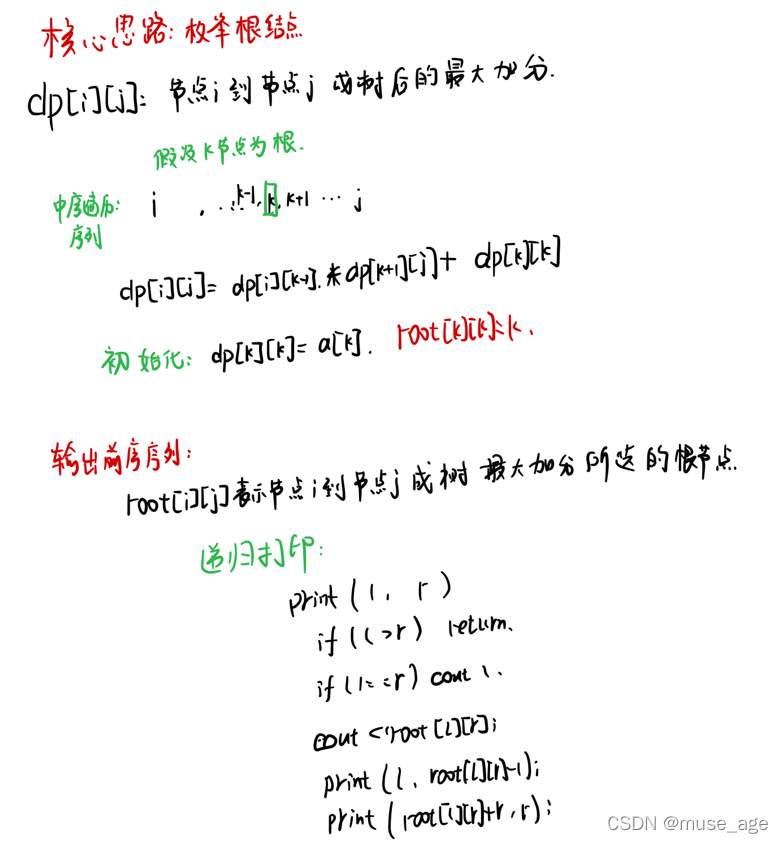 核心思路：枚举根结点
dp[i][j]：节点i到节点j 成树后的最大加分.
假设K节点为根.
中序遍历: i , . . . k-1, k, k+1 ... j
序列
dp[i][j]= dp[i][k-1].*dp[k+1][j]+ dp[k][k]
初始化： dp[k][k]= a[k]. root[k][k]=k.
输出前序序列：
root[i][j]表示节点i到节点j 成树 最大加分所选的根节点.
递归打印：
print(l, r)
if(l>r) return.
if(l==r) cout l.
cout <<root[l][r];
print(l, root[l][r]-1);
print(root[l][r]+r, r);
CSDN @muse_age